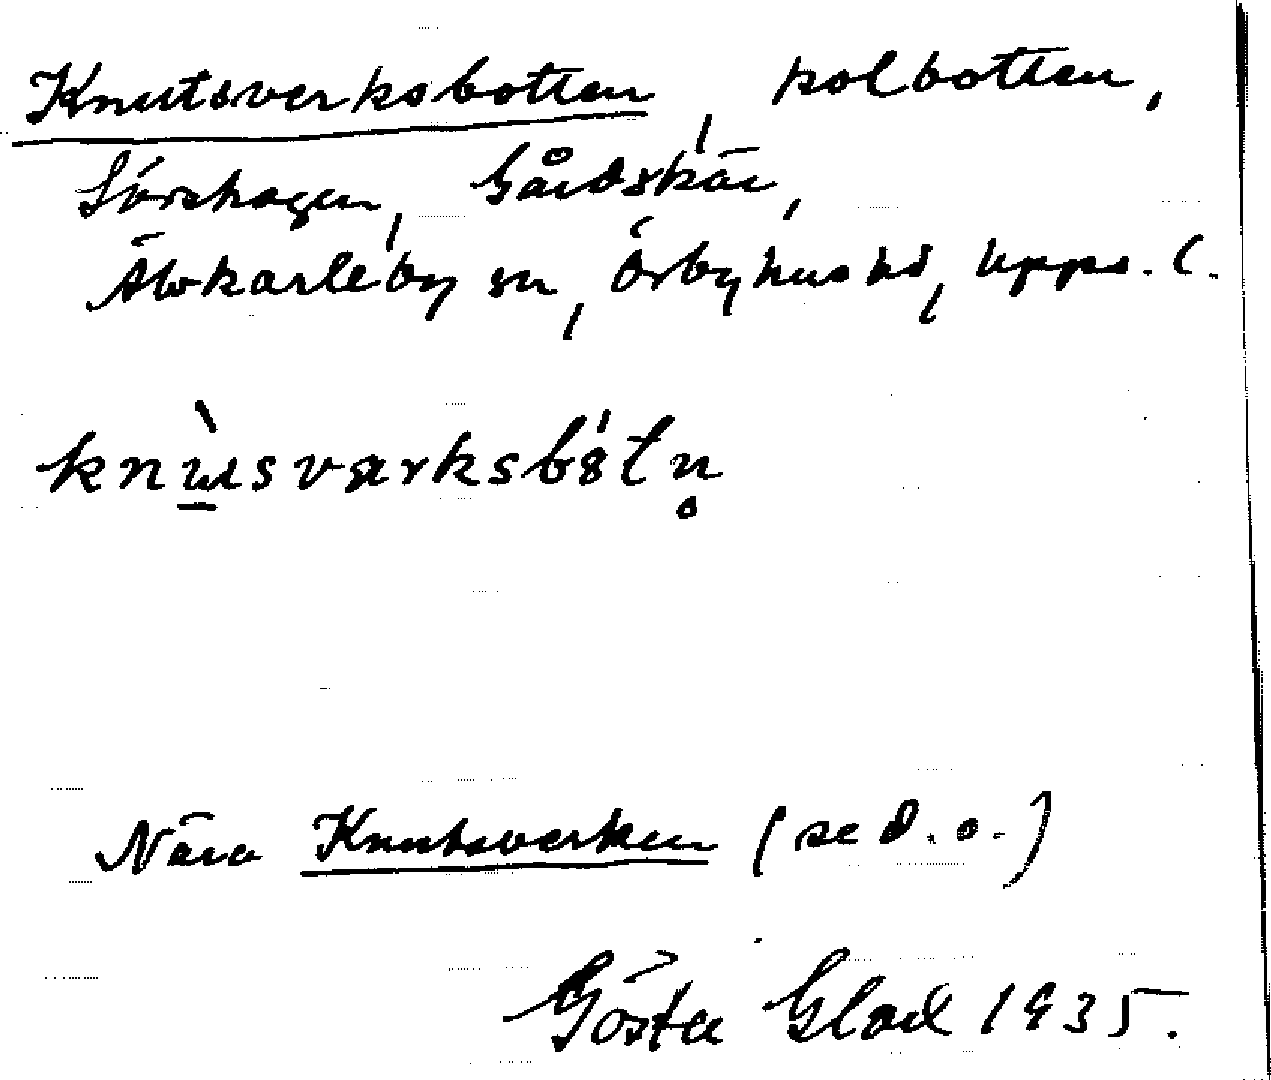 Knutsverksbotten, kolbotten,
Sörshagen, Gårdskär,
Älvkarleby sn, Örbyhus hd, Upps. l.
knùsværksbótn̥
Nära Knutsverken (se d. o.)
Gösta Glad 1935.